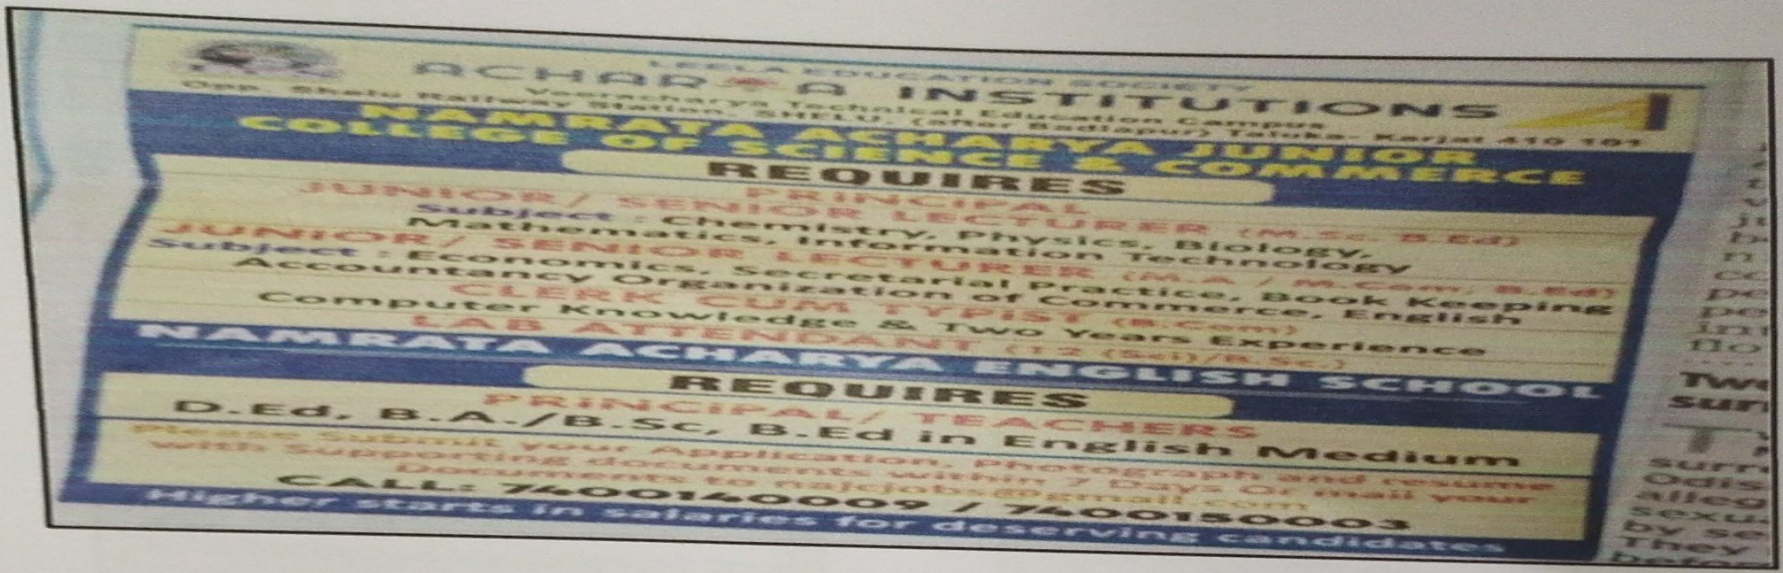 LEELA EDUCATION SOCIETY
ACHARYA INSTITUTIONS
Veeracharya Technical Education Campus
Opp. Shelu Railway Station, SHELU. (after Badlapur) Taluka- Karjat 410 101
NAMRATA ACHARYA JUNIOR
COLLEGE OF SCIENCE & COMMERCE
REQUIRES
PRINCIPAL
JUNIOR/ SENIOR LECTURER (M.Sc. B.Ed)
Subject : Chemistry, Physics, Biology,
Mathematics, Information Technology
JUNIOR/ SENIOR LECTURER (M.A / M.Com, B.Ed)
Subject : Economics, Secretarial Practice, Book Keeping
Accountancy Organization of Commerce, English
CLERK CUM TYPIST (B.Com)
Computer Knowledge & Two Years Experience
LAB ATTENDANT (12 (Sci)/B.Sc.)
NAMRATA ACHARYA ENGLISH SCHOOL
REQUIRES
PRINCIPAL/ TEACHERS
D.Ed, B.A./B.Sc, B.Ed in English Medium
Please Submit your Application, Photograph and resume
with Supporting documents within 7 Days Or mail your
Documents to
CALL: 7400140009 / 7400150003
Higher starts in salaries for deserving candidates
They